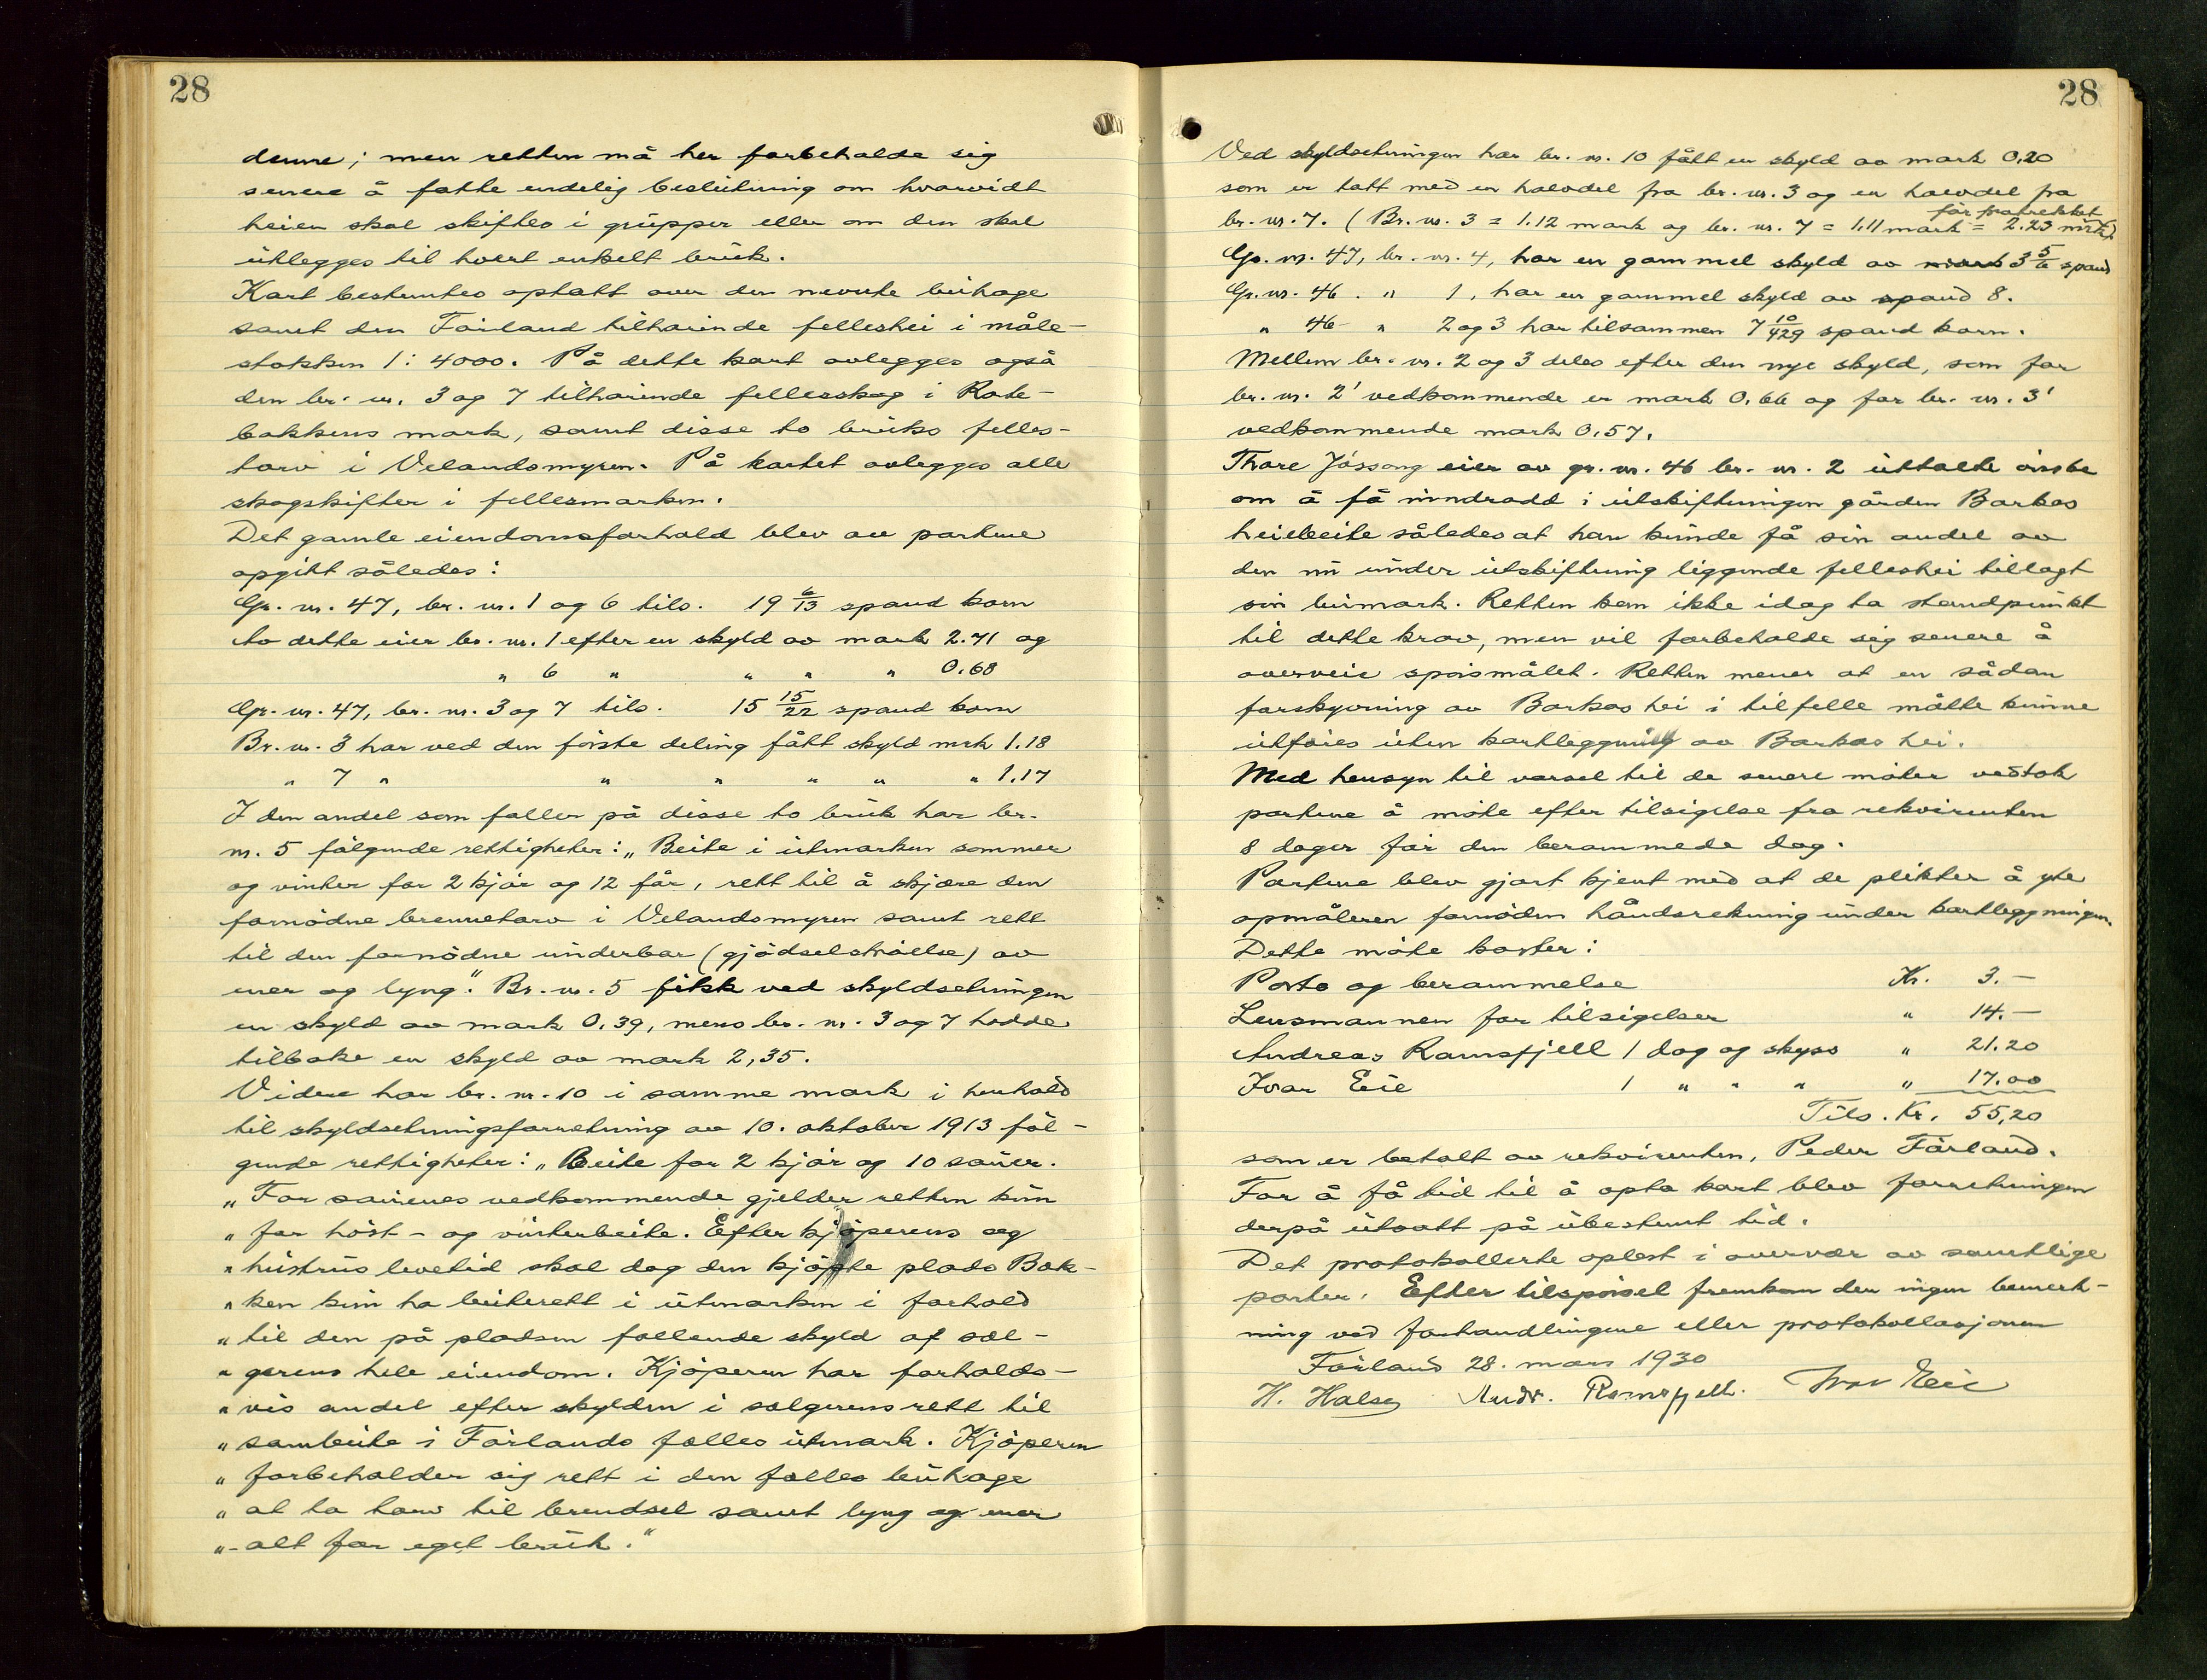 28
denne; men retten må her forbeholde sig
senere å fatte endelig beslutning om hvorvidt
heien skal skiftes i grupper eller om den skal
utlegges til hvert enkelt bruk.
Kart bestemtes optatt over den nevnte buhage
samt den Førland tilhørende felleshei i måle-
stokken 1:4000. På dette kart avlegges også
den br. nr. 3 og 7 tilhørende fellesskog i Rote-
bakkens mark, samt disse to bruks felles-
torv i Velandsmyren. På kartet avlegges alle
skogskifter i fellesmarken.
Det gamle eiendomsforhold blev av partene
opgitt således:
Gr. nr. 47, br. nr. 1 og 6 tils. 19 6/13 spand korn
Av dette eier br. nr. 1 efter en skyld av mark 2.71 og
" 6 " " " " 0.68
Gr. nr. 47, br. nr. 3 og 7 tils. 15 15/22 spand korn
Br. nr. 3 har ved den første deling fått skyld mrk 1.18
" 7 " " " " " " 1.17
I den andel som faller på disse to bruk har br.
nr. 5 følgende rettigheter: „Beite i utmarken sommer
og vinter for 2 kjør og 12 får, rett til å skjære den
fornødne brennetorv i Velandsmyren samt rett
til den fornødne underbar (gjødselstrøelse) av
ener og lyng." Br. nr. 5 fikk ved skyldsetningen
en skyld av mark 0.39, mens br. nr. 3 og 7 hadde
tilbake en skyld av mark 2,35.
Videre har br. nr. 10 i samme mark i henhold
til skyldsetningsforretning av 10. oktober 1913 føl-
gende rettigheter: „Beite for 2 kjør og 10 sauer.
„ For sauenes vedkommende gjelder retten kun
„ for høst- og vinterbeite. Efter kjøperens og
„ hustrus levetid skal dog den kjøpte plads Bak-
„ ken kun ha beiterett i utmarken i forhold
„ til den på pladsen fallende skyld af sæl-
„ gerens hele eiendom. Kjøperen har forholds-
„ vis andel efter skylden i sælgerens rett til
„ sambeite i Førlands fælles utmark. Kjøperen
„ forbeholder sig rett i den fælles buhage
„ at ta torv til brendsel samt lyng og ener
„ - alt for eget bruk."
28
Ved skyldsetningen har br. nr. 10 fått en skyld av mark 0,20
som er tatt med en halvdel fra br. nr. 3 og en halvdel fra
før fratrekket
br. nr. 7. (Br. nr. 3 = 1.12 mark og br. nr. 7 = 1.11 mark = 2.23 mrk)
Gr. nr. 47, br. nr. 4, har en gammel skyld av 3 5/6 spand
Gr. nr. 46. " 1, har en gammel skyld av spand 8.
" 46 " 2 og 3 har tilsammen 7 10/429 spand korn.
Mellem br. nr. 2 og 3 deles efter den nye skyld, som for
br. nr. 2' vedkommende er mark 0.66 og for br. nr. 3'
vedkommende mark 0.57.
Thore Jøssang eier av gr. nr. 46 br. nr. 2 uttalte ønske
om å få inndradd i utskiftningen gården Barkas
heiebeite således at han kunde få sin andel av
den nu under utskiftning liggende felleshei tillagt
sin bumark. Retten kan ikke idag ta standpunkt
til dette krav, men vil forbeholde sig senere å
overveie spørsmålet. Retten mener at en sådan
forskyvning av Barkas hei i tilfelle måtte kunne
utføres uten kartleggning av Barkas hei.
Med hensyn til varsel til de senere møter vedtok
partene å møte efter tilsigelse fra rekvirenten
8 dager før den berammede dag.
Partene blev gjort kjent med at de plikter å yte
opmåleren fornøden håndsrekning under kartleggningen.
Dette møte koster:
Porto og berammelse Kr. 3.-
Lensmannen for tilsigelser " 14.-
Andreas Ramsfjell 1 dag og skyss " 21.20
Ivar Eie 1 " " " " 17.00
Tils. Kr. 55,20
som er betalt av rekvirenten, Peder Førland.
For å få tid til å opta kart blev forretningen
derpå utsatt på ubestemt tid.
Det protokollerte oplest i overvær av samtlige
parter. Efter tilspørsel fremkom der ingen bemerk-
ning ved forhandlingene eller protokollasjonen
Førland 28. mars 1930
H. Halsey Andr. Ramsfjell. Ivar Eie